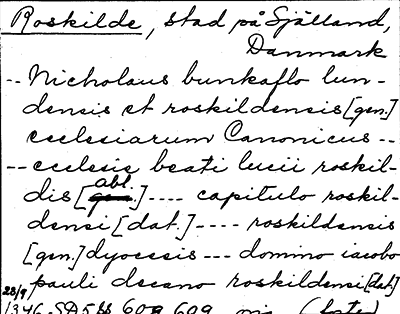 Roskilde, stad på Själland,
Danmark
-- Nicholaus bunkaflo lun-
densis et roskildensis [gen.]
ecclesiarum Canonicus --
-- ecclesie beati lucii roskil-
dis [abl.] ---- capitulo roskil-
densi [dat.] ---- roskildensis
[gen.] dyocesis --- domino iacobo
pauli decano roskildensi [dat.]
28/9
1346 SD 5 609